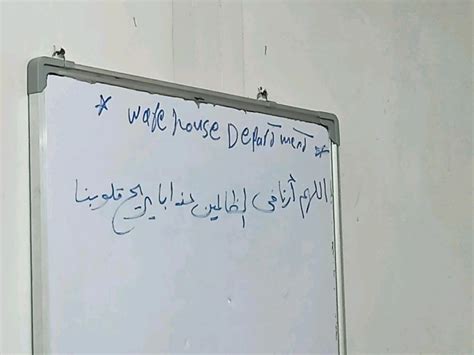 * Warehouse Department *
اللهم أرنا في الظالمين عذابا يريح قلوبنا